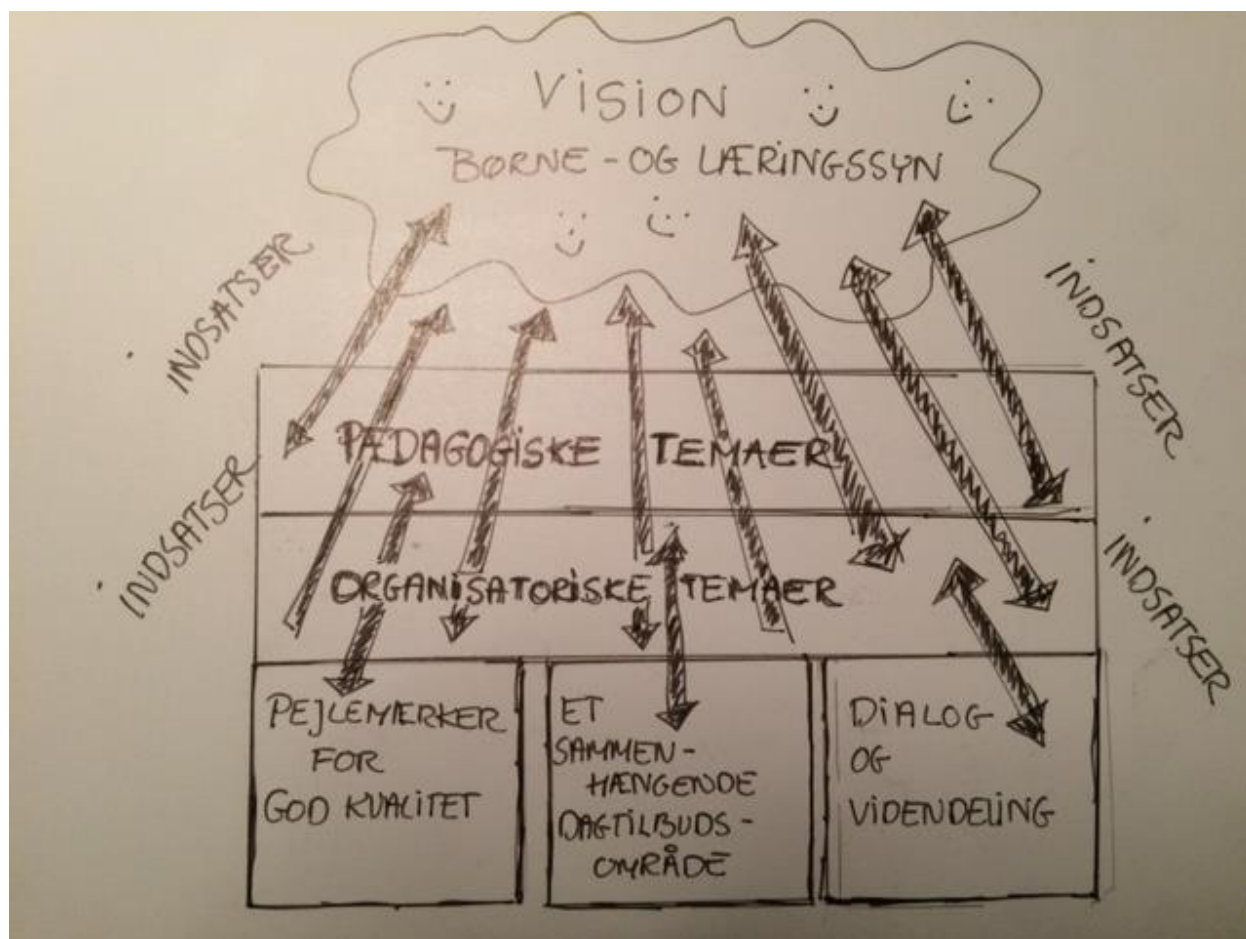 VISION
BØRNE - OG LÆRINGSSYN
INDSATSER
INDSATSER
PÆDAGOGISKE TEMAER
INDSATSER
INDSATSER
ORGANISATORISKE TEMAER
PEJLEMÆRKER
FOR
GOD KVALITET
ET
SAMMEN-
HÆNGENDE
DAGTILBUDS-
OMRÅDE
DIALOG
OG
VIDENDELING